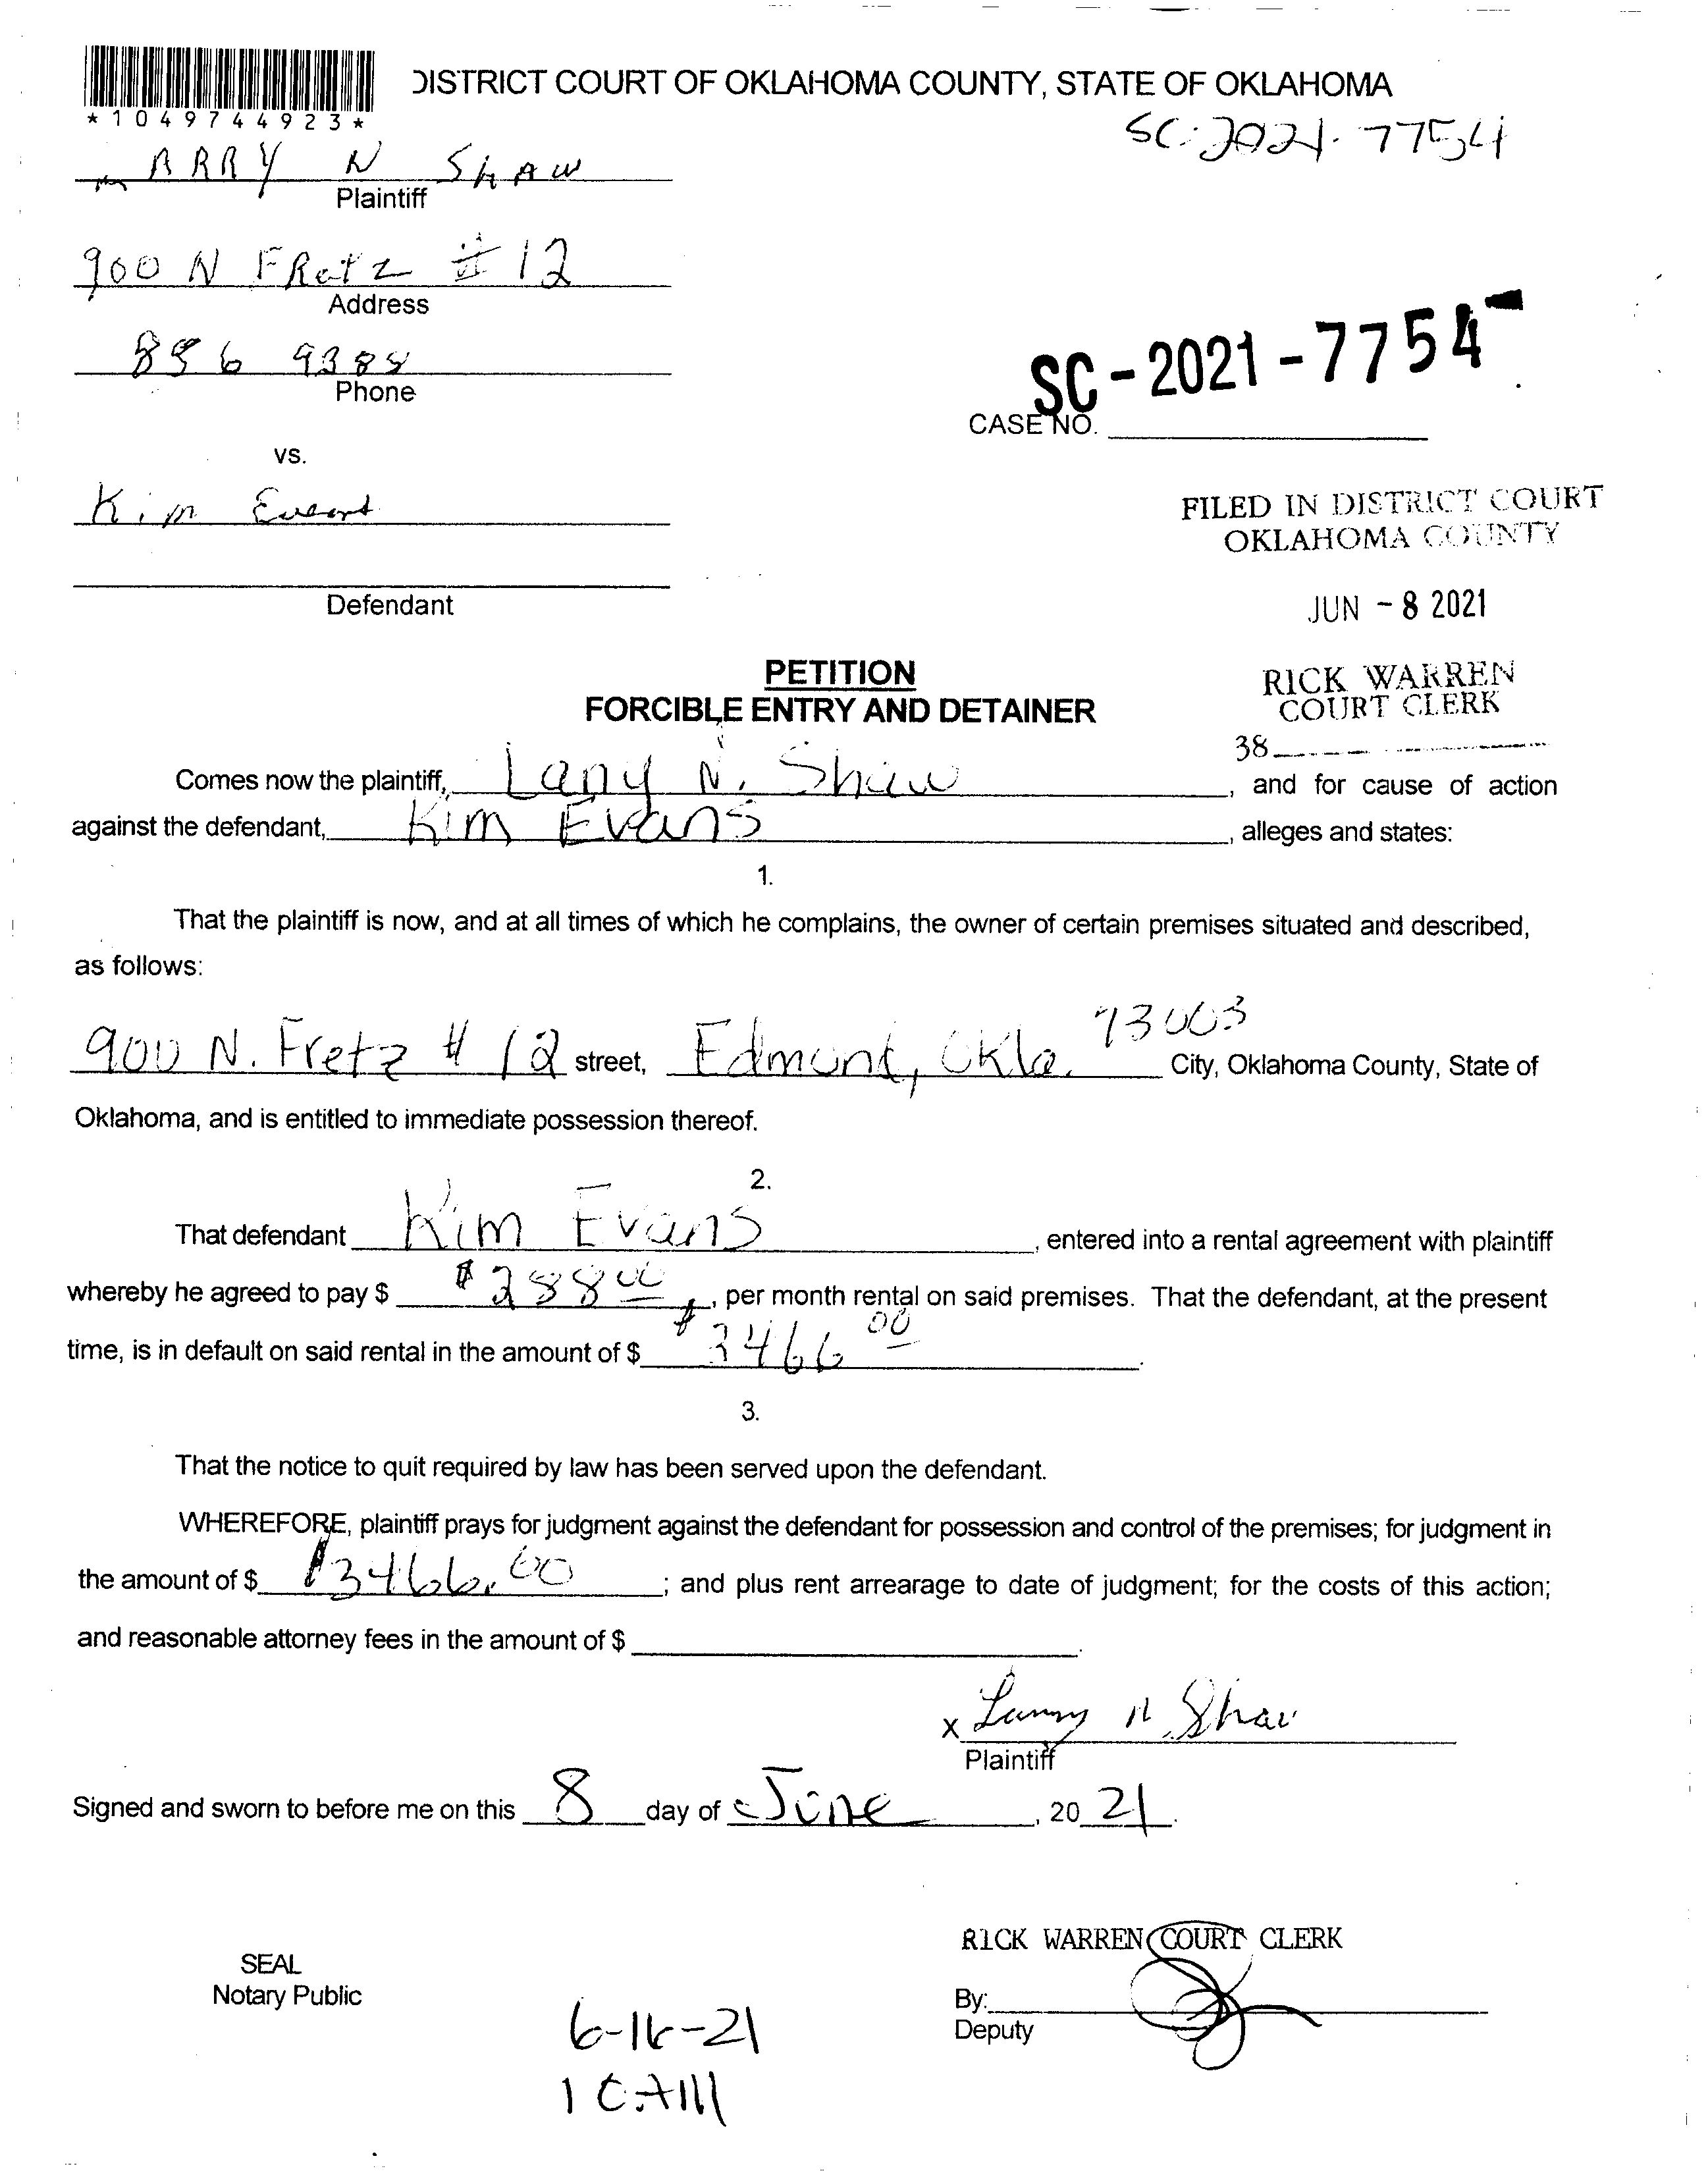 *1049744923*
DISTRICT COURT OF OKLAHOMA COUNTY, STATE OF OKLAHOMA
SC-2021-7754
ARRY N SHAW
Plaintiff
900 N FRetz # 12
Address
9388
Phone
SC-2021-7754
CASE NO.
vs.
Kim
FILED IN DISTRICT COURT
OKLAHOMA COUNTY
Defendant
JUN -8 2021
PETITION
RICK WARREN
FORCIBLE ENTRY AND DETAINER
COURT CLERK
38
Comes now the plaintiff, Larry N. Shaw, and for cause of action
against the defendant, Kim Evans, alleges and states:
1.
That the plaintiff is now, and at all times of which he complains, the owner of certain premises situated and described,
as follows:
900 N. Fretz # 12 street, Edmond, Okla. 73003 City, Oklahoma County, State of
Oklahoma, and is entitled to immediate possession thereof.
2.
That defendant Kim Evans, entered into a rental agreement with plaintiff
whereby he agreed to pay $ $288 00, per month rental on said premises. That the defendant, at the present
time, is in default on said rental in the amount of $ $3466 00.
3.
That the notice to quit required by law has been served upon the defendant.
WHEREFORE, plaintiff prays for judgment against the defendant for possession and control of the premises; for judgment in
the amount of $ $3466.00; and plus rent arrearage to date of judgment; for the costs of this action;
and reasonable attorney fees in the amount of $
x Larry N Shaw
Plaintiff
Signed and sworn to before me on this 8 day of June, 20 21.
RICK WARREN COURT CLERK
SEAL
Notary Public
By:
Deputy
6-16-21
10 AM